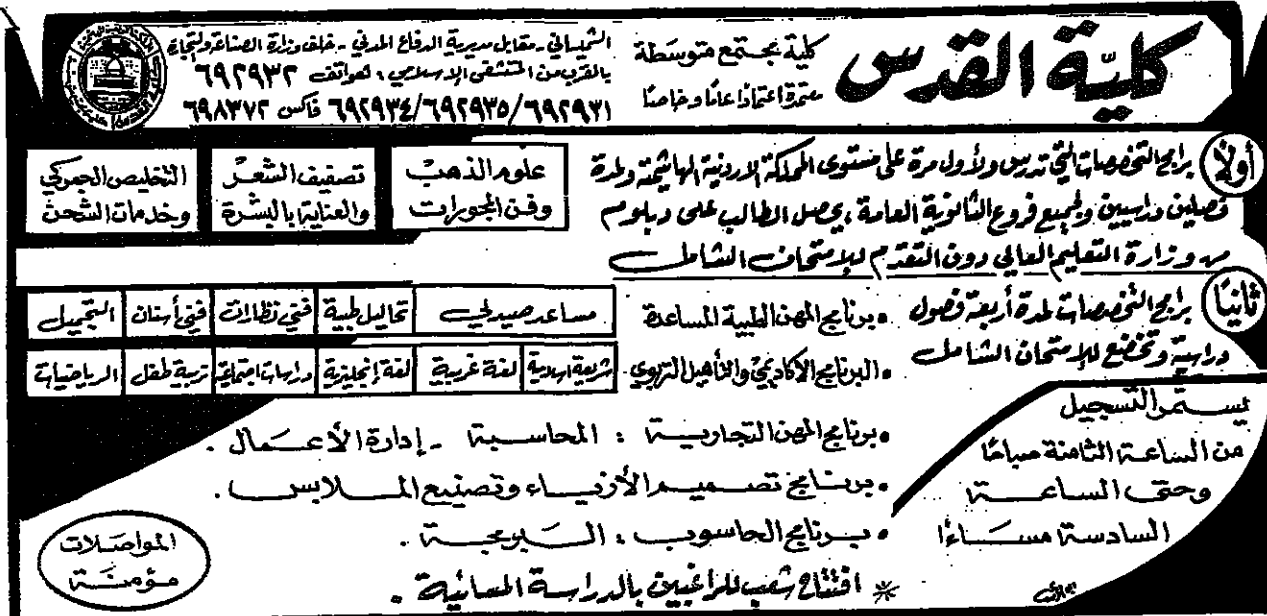 كليّة القدس
كلية مجتمع متوسطة
معتمدة اعتماداً عاماً وخاصاً
الشميساني - مقابل مديرية الدفاع المدني - خلف وزارة الصناعة والتجارة
بالقرب من المستشفى الإسلامي، هواتف ٦٩٢٩٣٢
٦٩٢٩٣١/٦٩٢٩٣٥/٦٩٢٩٣٤ فاكس ٦٩٨٣٧٢
أولاً برامج التخصصات التي تدرس ولأول مرة على مستوى المملكة الاردنية الهاشمية ولمدة
فصلين دراسيين ولجميع فروع الثانوية العامة، يحصل الطالب على دبلوم
من وزارة التعليم العالي دون التقدم للامتحان الشامل
علوم الذهب
وفن المجوهرات
تصفيف الشعر
والعناية بالبشرة
التخليص الجمركي
وخدمات الشحن
ثانياً برامج التخصصات لمدة أربعة فصول
دراسية وتخضع للامتحان الشامل
• برنامج المهن الطبية المساعدة
مساعد صيدلي
تحاليل طبية
فني نظارات
فني أسنان
التجميل
• البرنامج الاكاديمي والتأهيل التربوي
شريعة اسلامية
لغة عربية
لغة إنجليزية
دراسات اجتماعية
تربية طفل
الرياضيات
• برنامج المهن التجارية : المحاسبة - إدارة الأعمال .
• برنامج تصميم الأزياء وتصنيع الملابس .
• برنامج الحاسوب : البرمجة .
* افتتاح شعب للراغبين بالدراسة المسائية .
يستمر التسجيل
من الساعة الثامنة صباحًا
وحتى الساعة
السادسة مساءًا
المواصلات
مؤمنة